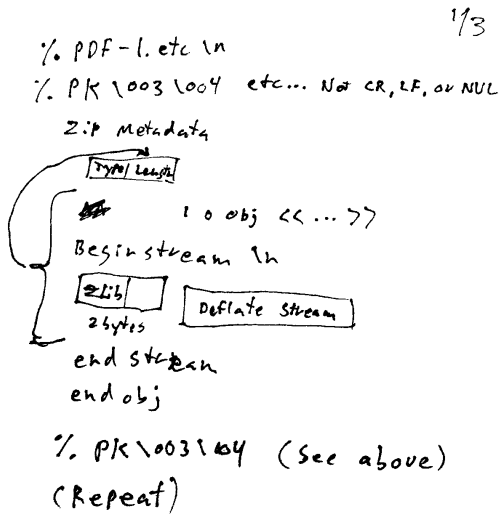 1/3
% PDF-1.etc \n
% PK \003 \004 etc... Not CR, LF, or NUL
Zip Metadata
Type/Length
1 0 obj << ... >>
Begin stream \n
ZLib
Deflate Stream
2 bytes
end stream
end obj
% PK\003\004 (See above)
(Repeat)